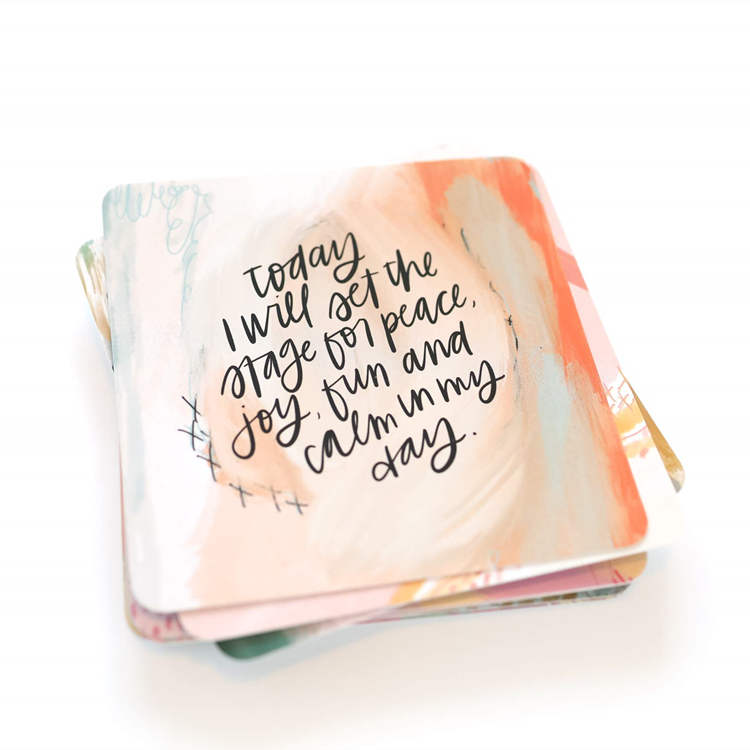 today
I will set the
stage for peace,
joy, fun and
calm in my
day.